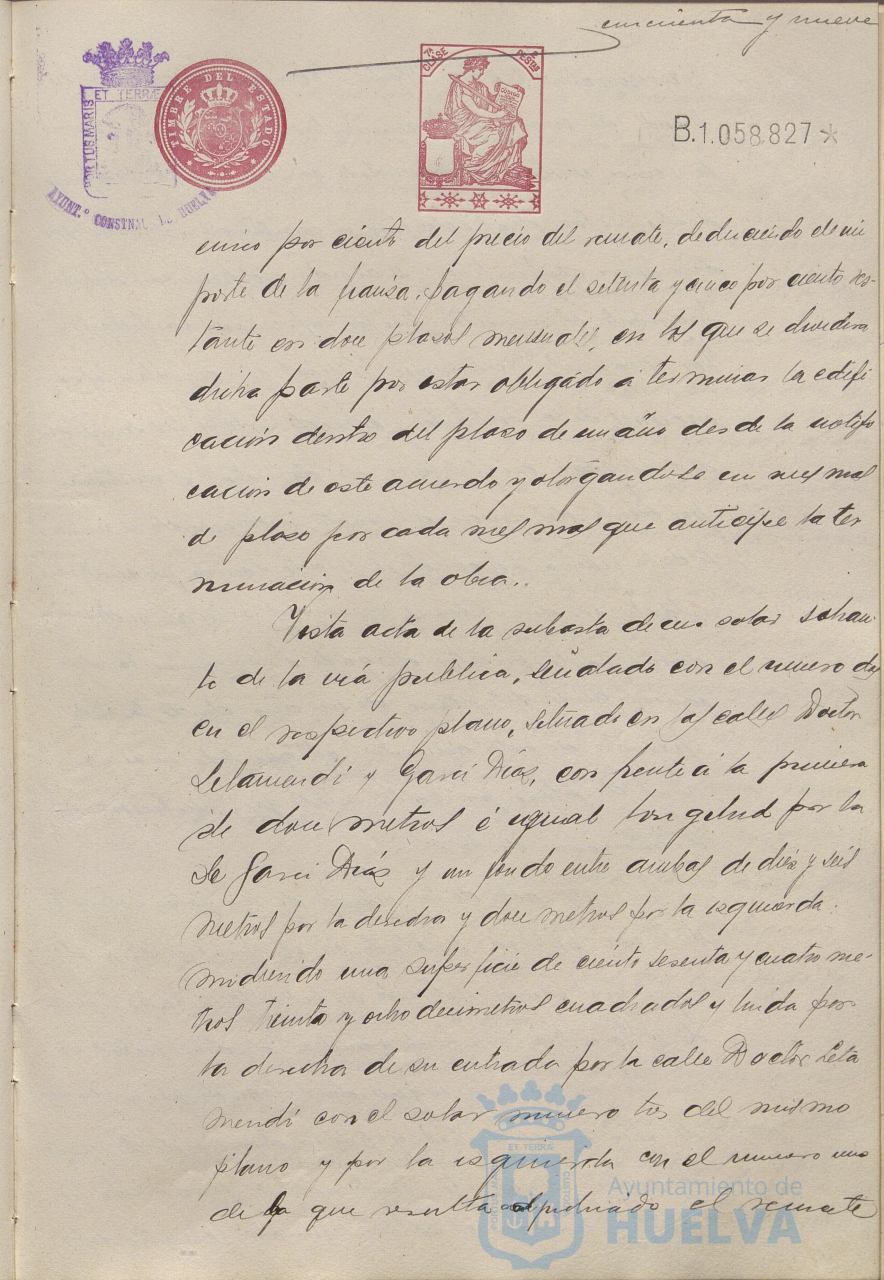 cincuenta y nueve
7ª CLASE
2 PESTAS
TIMBRE DEL ESTADO
PORTUS MARIS ET TERRÆ
AYUNT.º CONSTNAL DE HUELVA
B.1.058.827*
cinco por ciento del precio del remate, deduciendo el im
porte de la fianza, pagando el setenta y cinco por ciento res-
tante en doce plazos mensuales, en los que se dividira
dicha parte por estar obligado a terminar la edifi
cación dentro del plazo de un año desde la notifi
cación de este acuerdo y otorgandose un mes mas
de plazo por cada mes mas que anticipe la ter
minacion de la obra..
Vista acta de la subasta de un solar sobran-
te de la via publica, señalado con el numero dos
en el respectivo plano, situado en las calles Doctor
Letamendi y Garci Diaz, con frente á la primera
de doce metros é igual longitud por la
de Garci Diaz y un fondo entre ambas de diez y seis
metros por la derecha y doce metros por la izquierda.
midiendo una superficie de ciento sesenta y cuatro me-
tros treinta y ocho decimetros cuadrados y linda por
la derecha de su entrada por la calle Doctor Leta
mendi con el solar numero tres del mismo
plano y por la izquierda con el numero uno
de la que resulta adjudicado el remate
ET TERRÆ
Ayuntamiento de
HUELVA